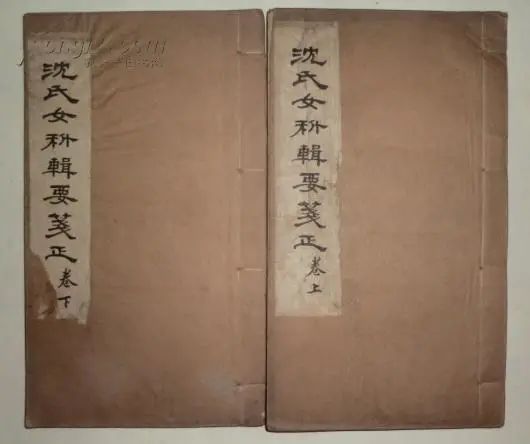 沈氏女科輯要箋正 卷上
沈氏女科輯要箋正 卷下